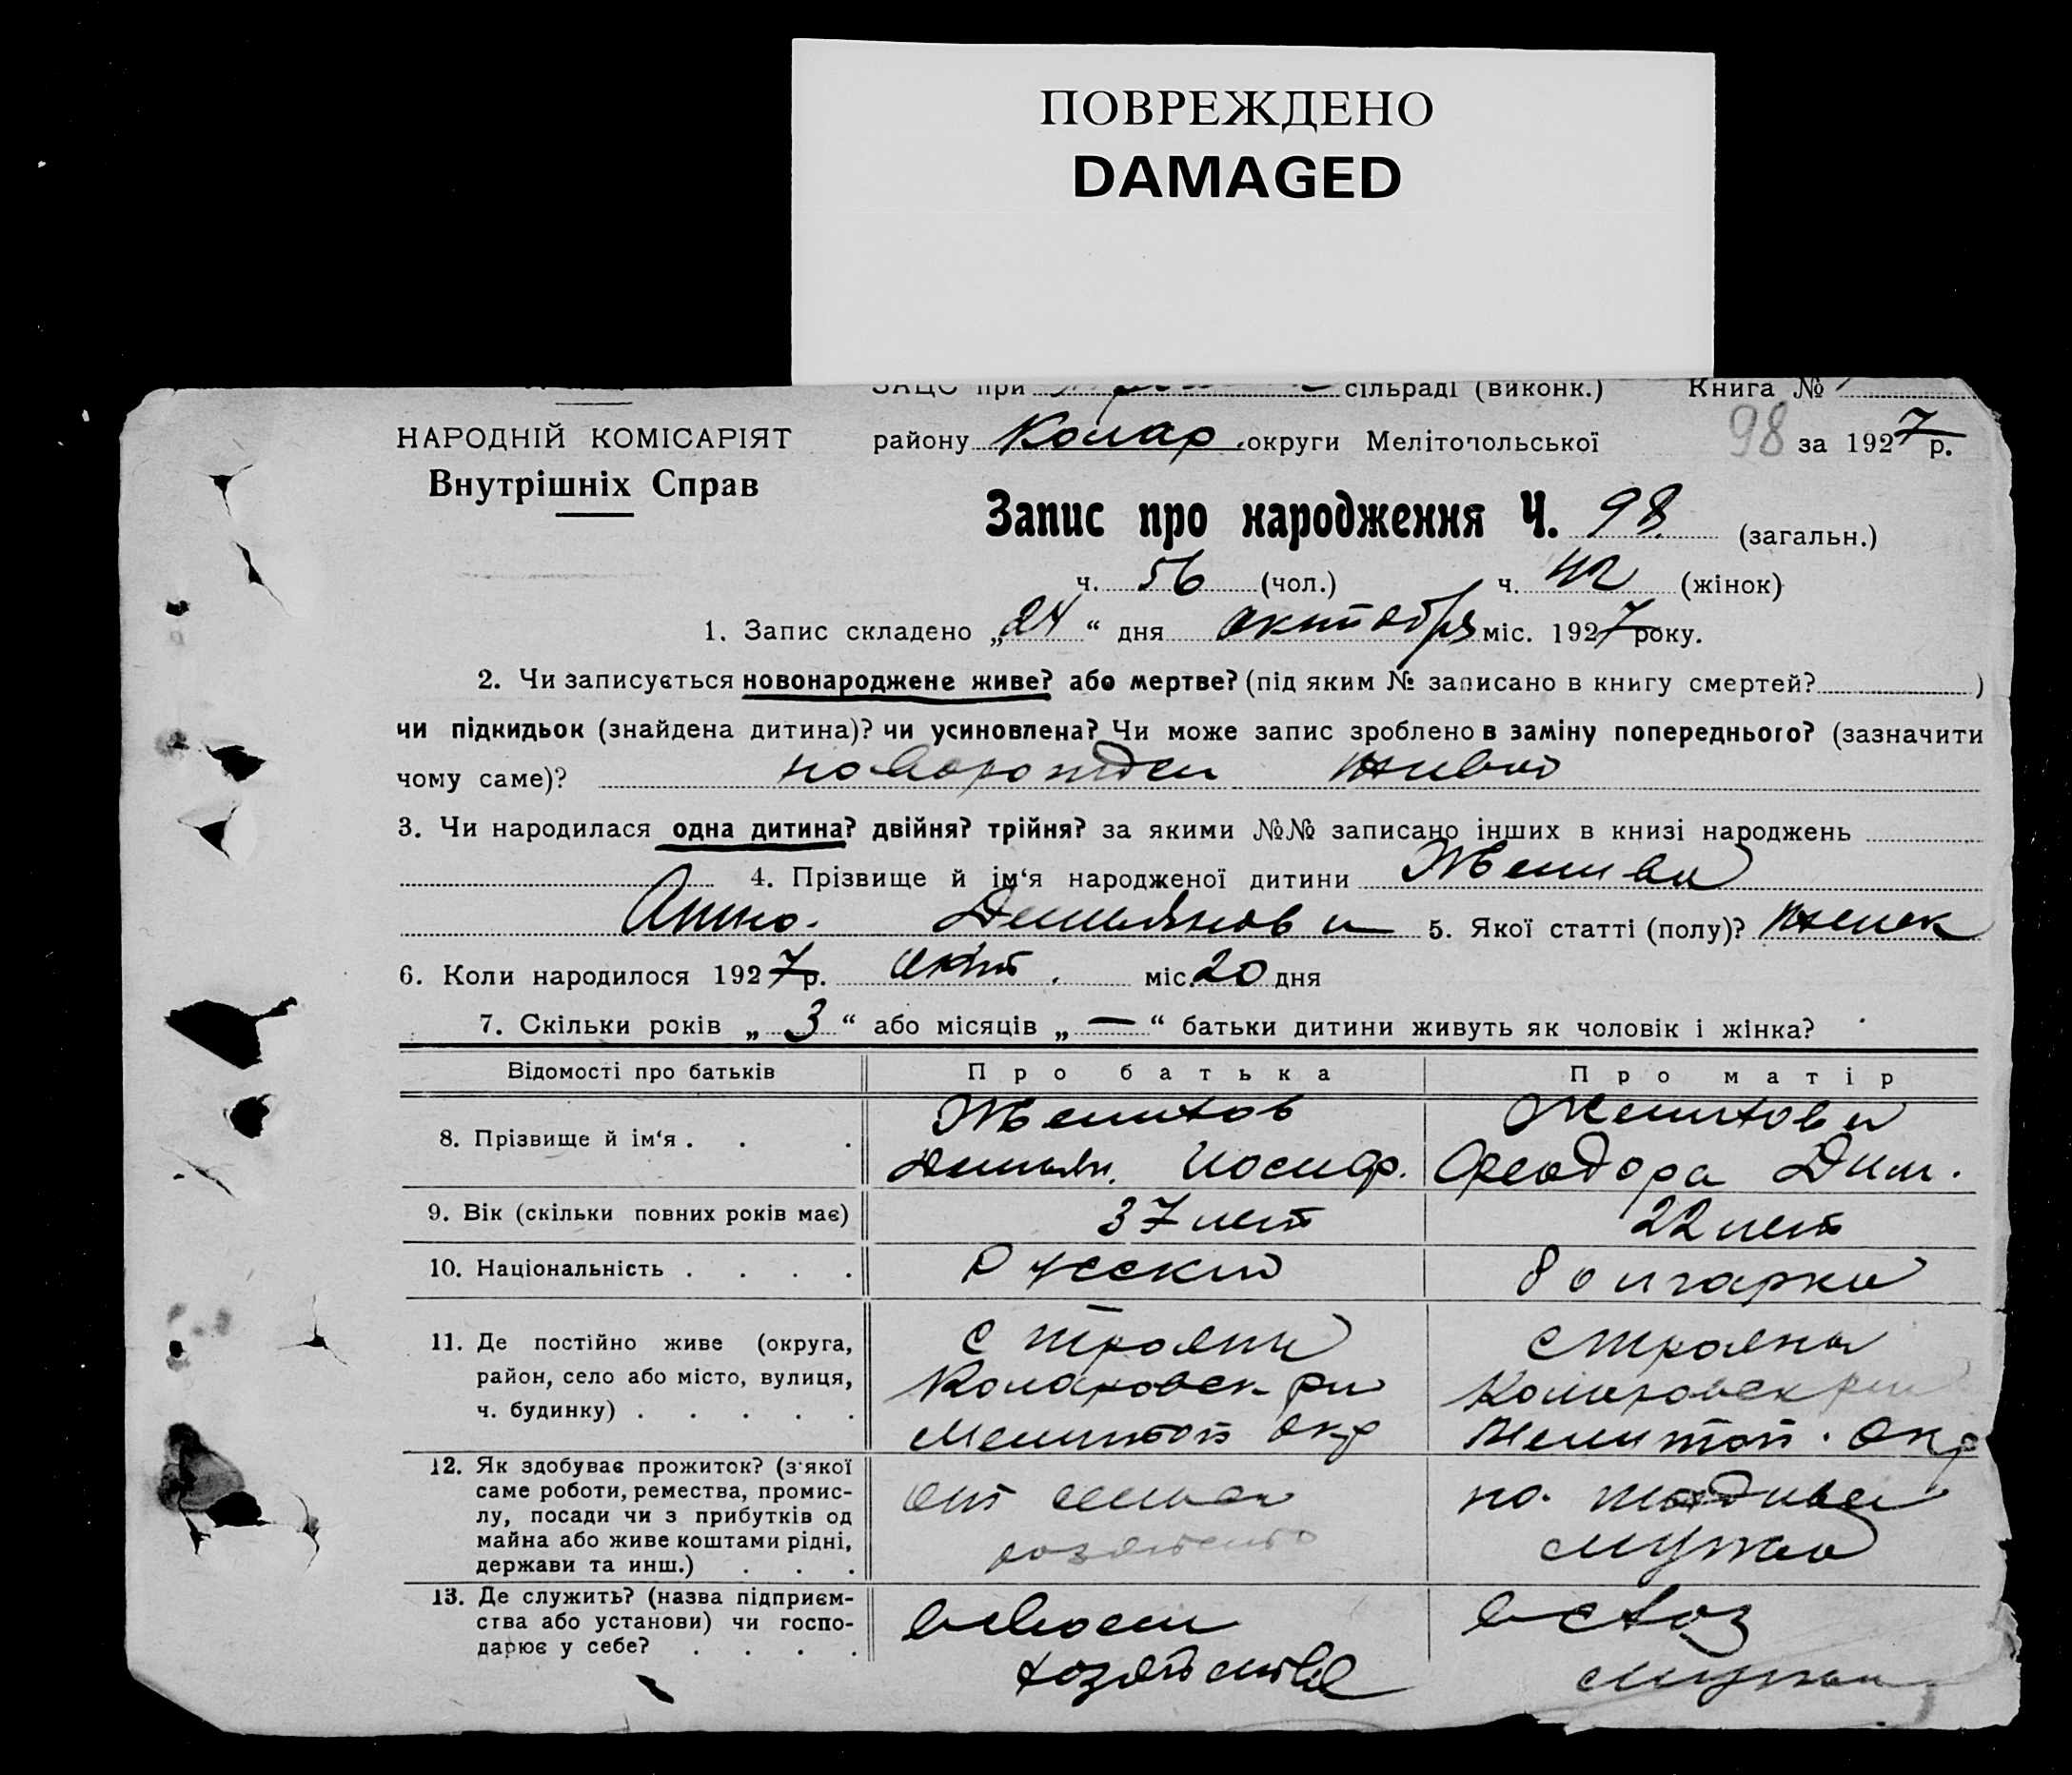 ПОВРЕЖДЕНО
DAMAGED
ЗАЦС при сільраді (виконк.) Книга №
НАРОДНІЙ КОМІСАРІЯТ
району Колар. округи Мелітопольської 98 за 1927 р.
Внутрішніх Справ
Запис про народження Ч. 98 (загальн.)
ч. 56 (чол.) ч. 42 (жінок)
1. Запис складено „24“ дня октября міс. 1927 року.
2. Чи записується новонароджене живе? або мертве? (під яким № записано в книгу смертей? )
чи підкидьок (знайдена дитина)? чи усиновлена? Чи може запис зроблено в заміну попереднього? (зазначити
чому саме)? новорожден живой
3. Чи народилася одна дитина? двійня? трійня? за якими №№ записано інших в книзі народжень
4. Прізвище й ім‘я народженої дитини
Анна Демьянов 5. Якої статті (полу)? женск
6. Коли народилося 1927 р. окт. міс. 20 дня
7. Скільки років „3“ або місяців „—“ батьки дитини живуть як чоловік і жінка?
Відомості про батьків Про батька Про матір
8. Прізвище й ім‘я . . .
Демьян. Иосиф. Феодора Дим.
9. Вік (скільки повних років має) 37 лет 22 лет
10. Національність . . . . Русский болгарка
11. Де постійно живе (округа, с Трояны с Трояны
район, село або місто, вулиця, Коларовск р-н Коларовск р-н
ч. будинку) . . . . . Мелитоп окр Мелитоп. окр
12. Як здобуває прожиток? (з'якої
саме роботи, ремества, промис- от сельск на иждивен
лу, посади чи з прибутків од
майна або живе коштами рідні, хозяйства мужа
держави та инш.) . . .
13. Де служить? (назва підприєм-
ства або установи) чи госпо- в своем в хоз
дарює у себе? . . . . хозяйстве мужа